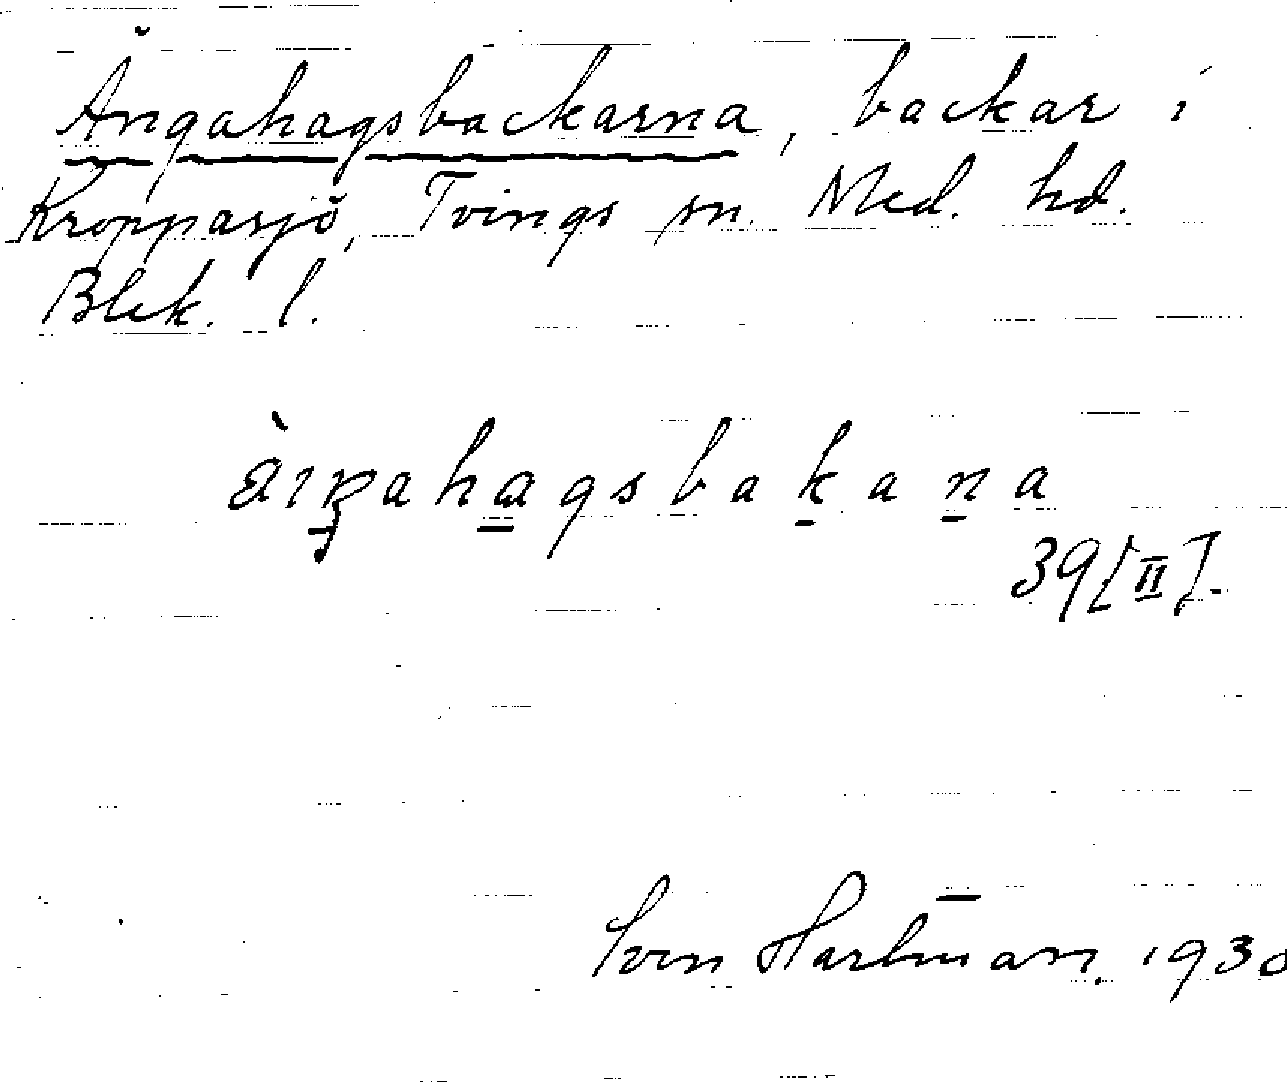 Ängahagsbackarna, backar i
Kropparsjö, Tvings sn. Med. hd.
Blek. l.
39 [II].
Sven Hartman. 1930